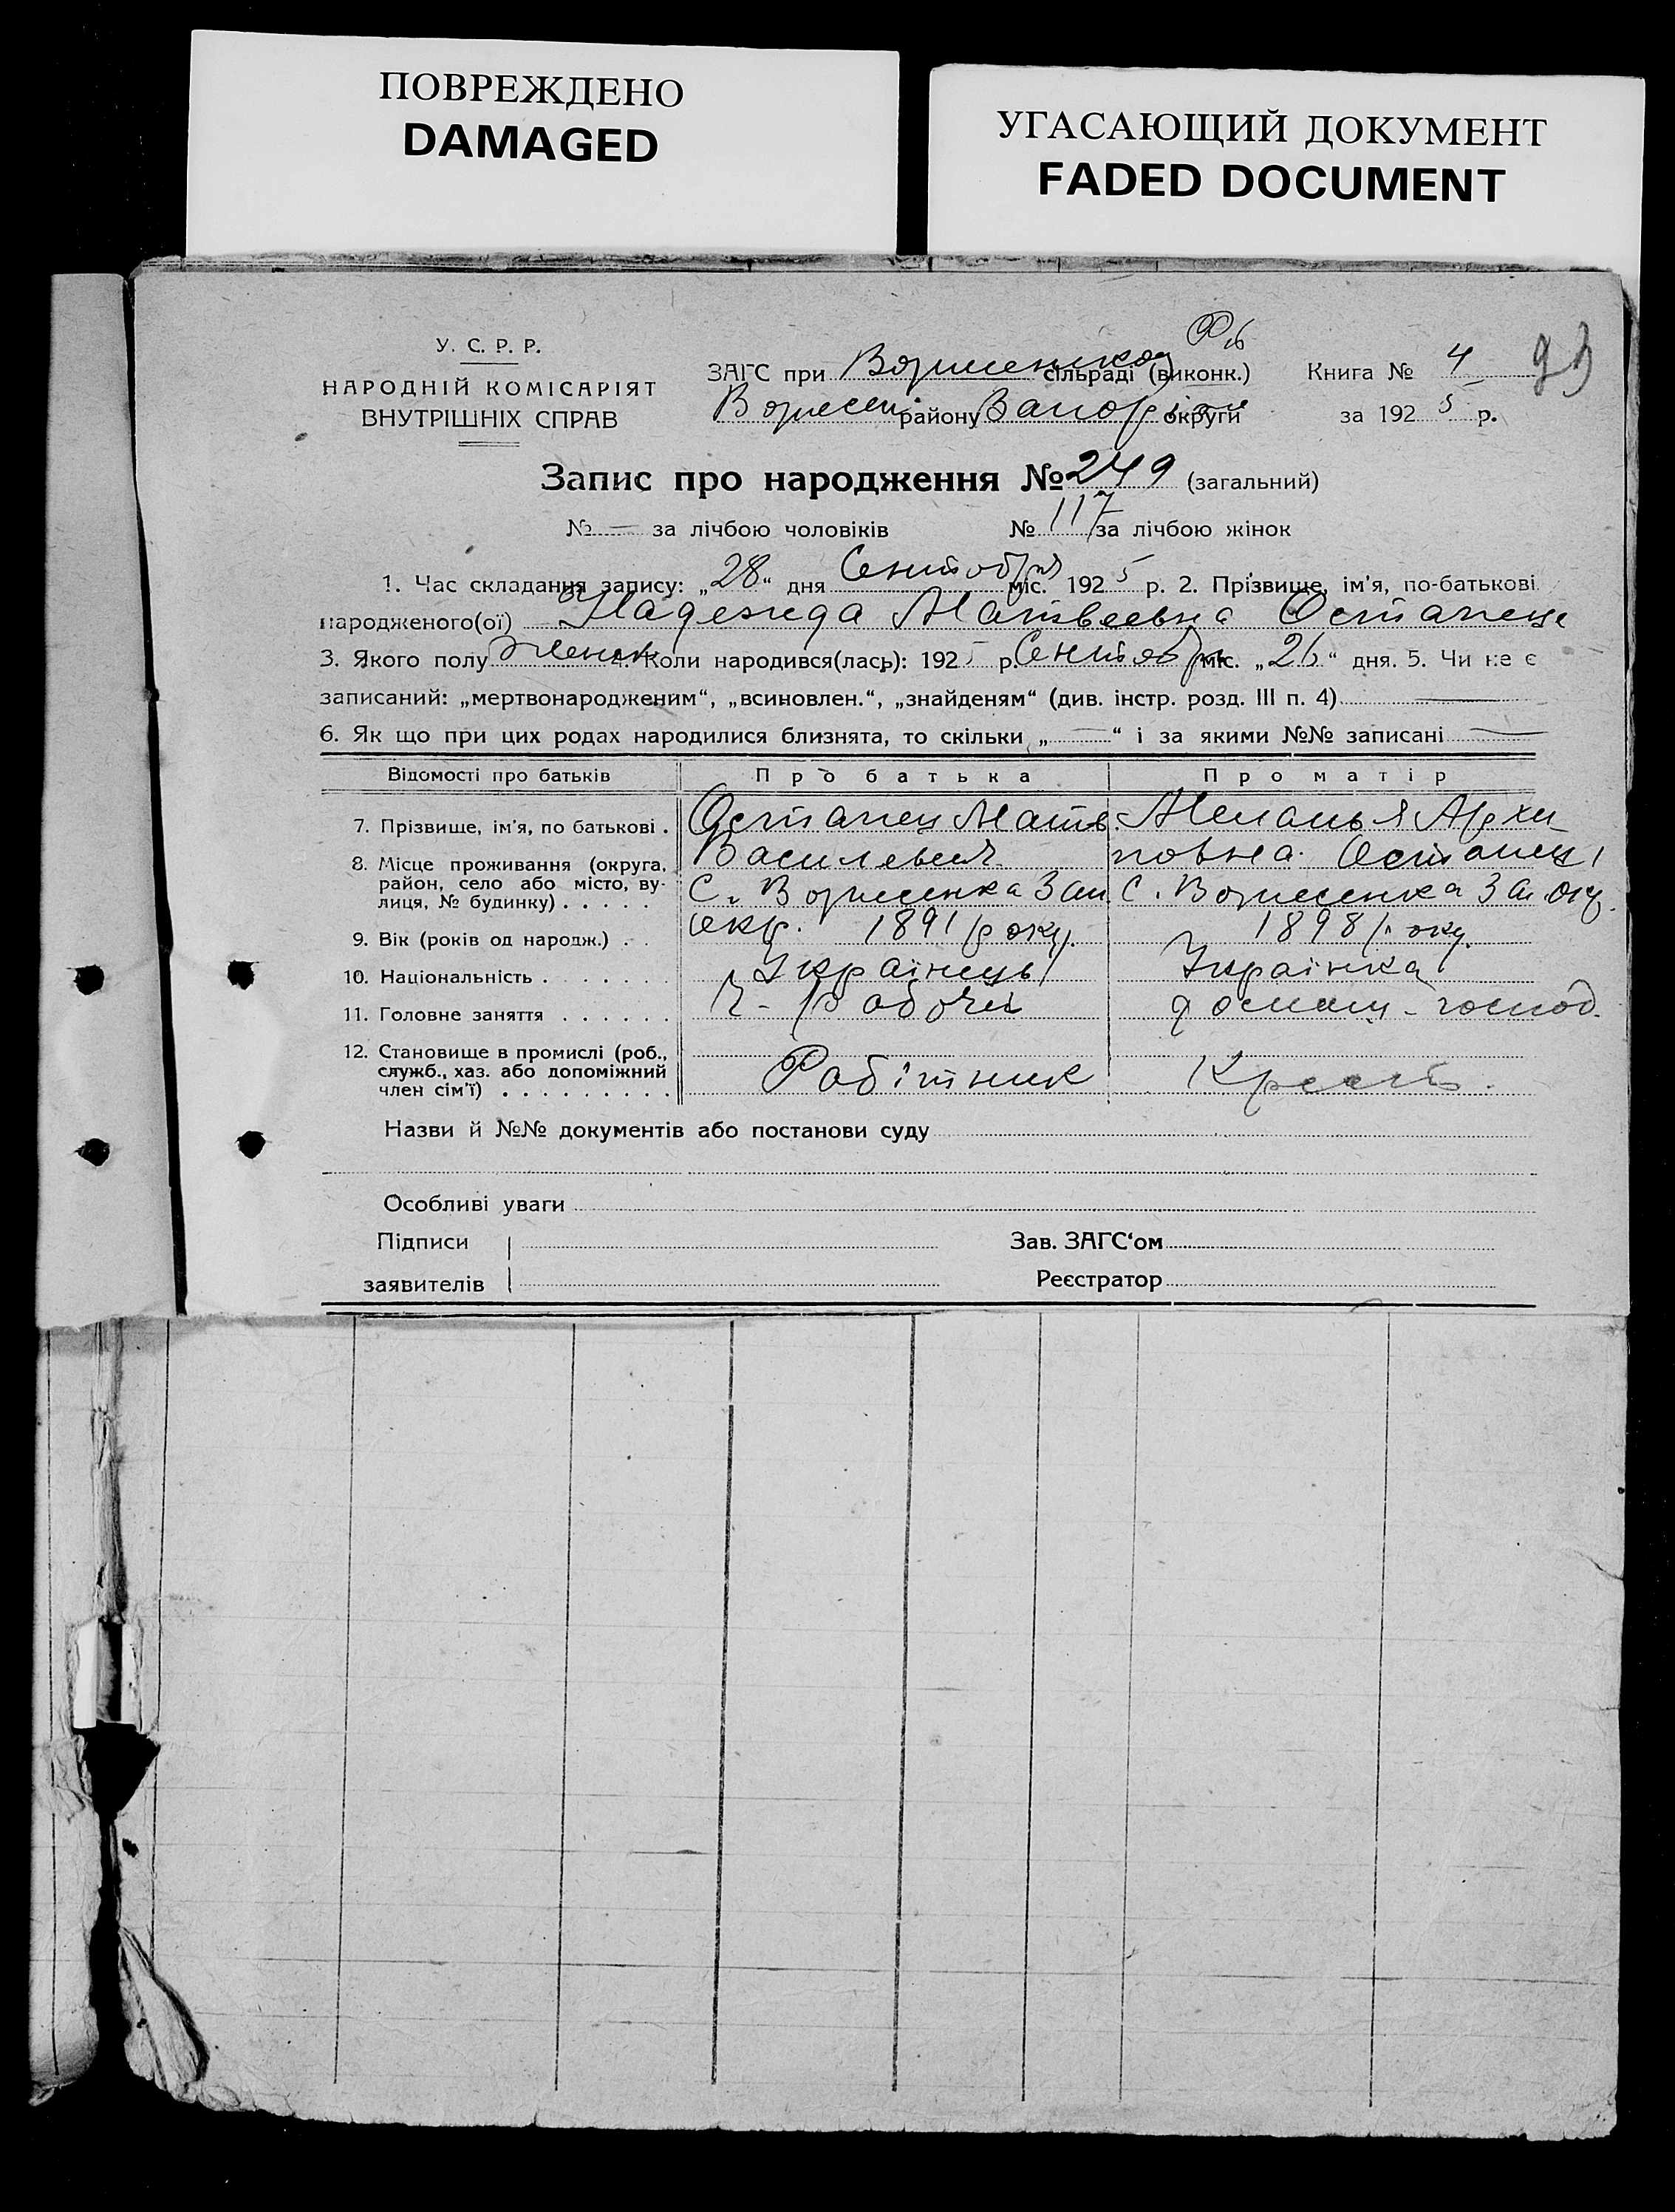 ПОВРЕЖДЕНО
DAMAGED
УГАСАЮЩИЙ ДОКУМЕНТ
FADED DOCUMENT
У. С. Р. Р.
НАРОДНІЙ КОМІСАРІЯТ
ВНУТРІШНІХ СПРАВ
ЗАГС при Вознесенской сільраді (виконк.)
Вознесен. району Запорізк округи
Книга № 4
за 1925 р.
Запис про народження № 249 (загальний)
№ — за лічбою чоловіків № 117 за лічбою жінок
1. Час складання запису: „28“ дня Сентября міс. 1925 р. 2. Прізвище, ім'я, по-батькові
народженого(ої) Надежда Матвеевна Остапець
3. Якого полу Женск 4. Коли народився(лась): 1925 р. Сентября міс. „26“ дня. 5. Чи не є
записаний: „мертвонародженим“, „всиновлен.“, „знайденям“ (див. інстр. розд. III п. 4) —
6. Як що при цих родах народилися близнята, то скільки „—“ і за якими №№ записані —
Відомості про батьків Про батька Про матір
7. Прізвище, ім'я, по батькові . Остапец Матв. Меланья Архи
Васильевич повна Остапец
8. Місце проживання (округа, район, село або місто, вулиця, № будинку) . . . . . С. Вознесенка Зап. С. Вознесенка Зап. окр.
окр.
9. Вік (років од народж.) . . 1891 року. 1898 року.
10. Національність . . . . . . . Українець Українка
11. Головне заняття . . . . . . Ч-рабочий домаш-господ.
12. Становище в промислі (роб., служб., хаз. або допоміжний член сім'ї) . . . . . . . . . Робітник Крест.
Назви й №№ документів або постанови суду
Особливі уваги
Підписи
заявителів
Зав. ЗАГС'ом
Реєстратор